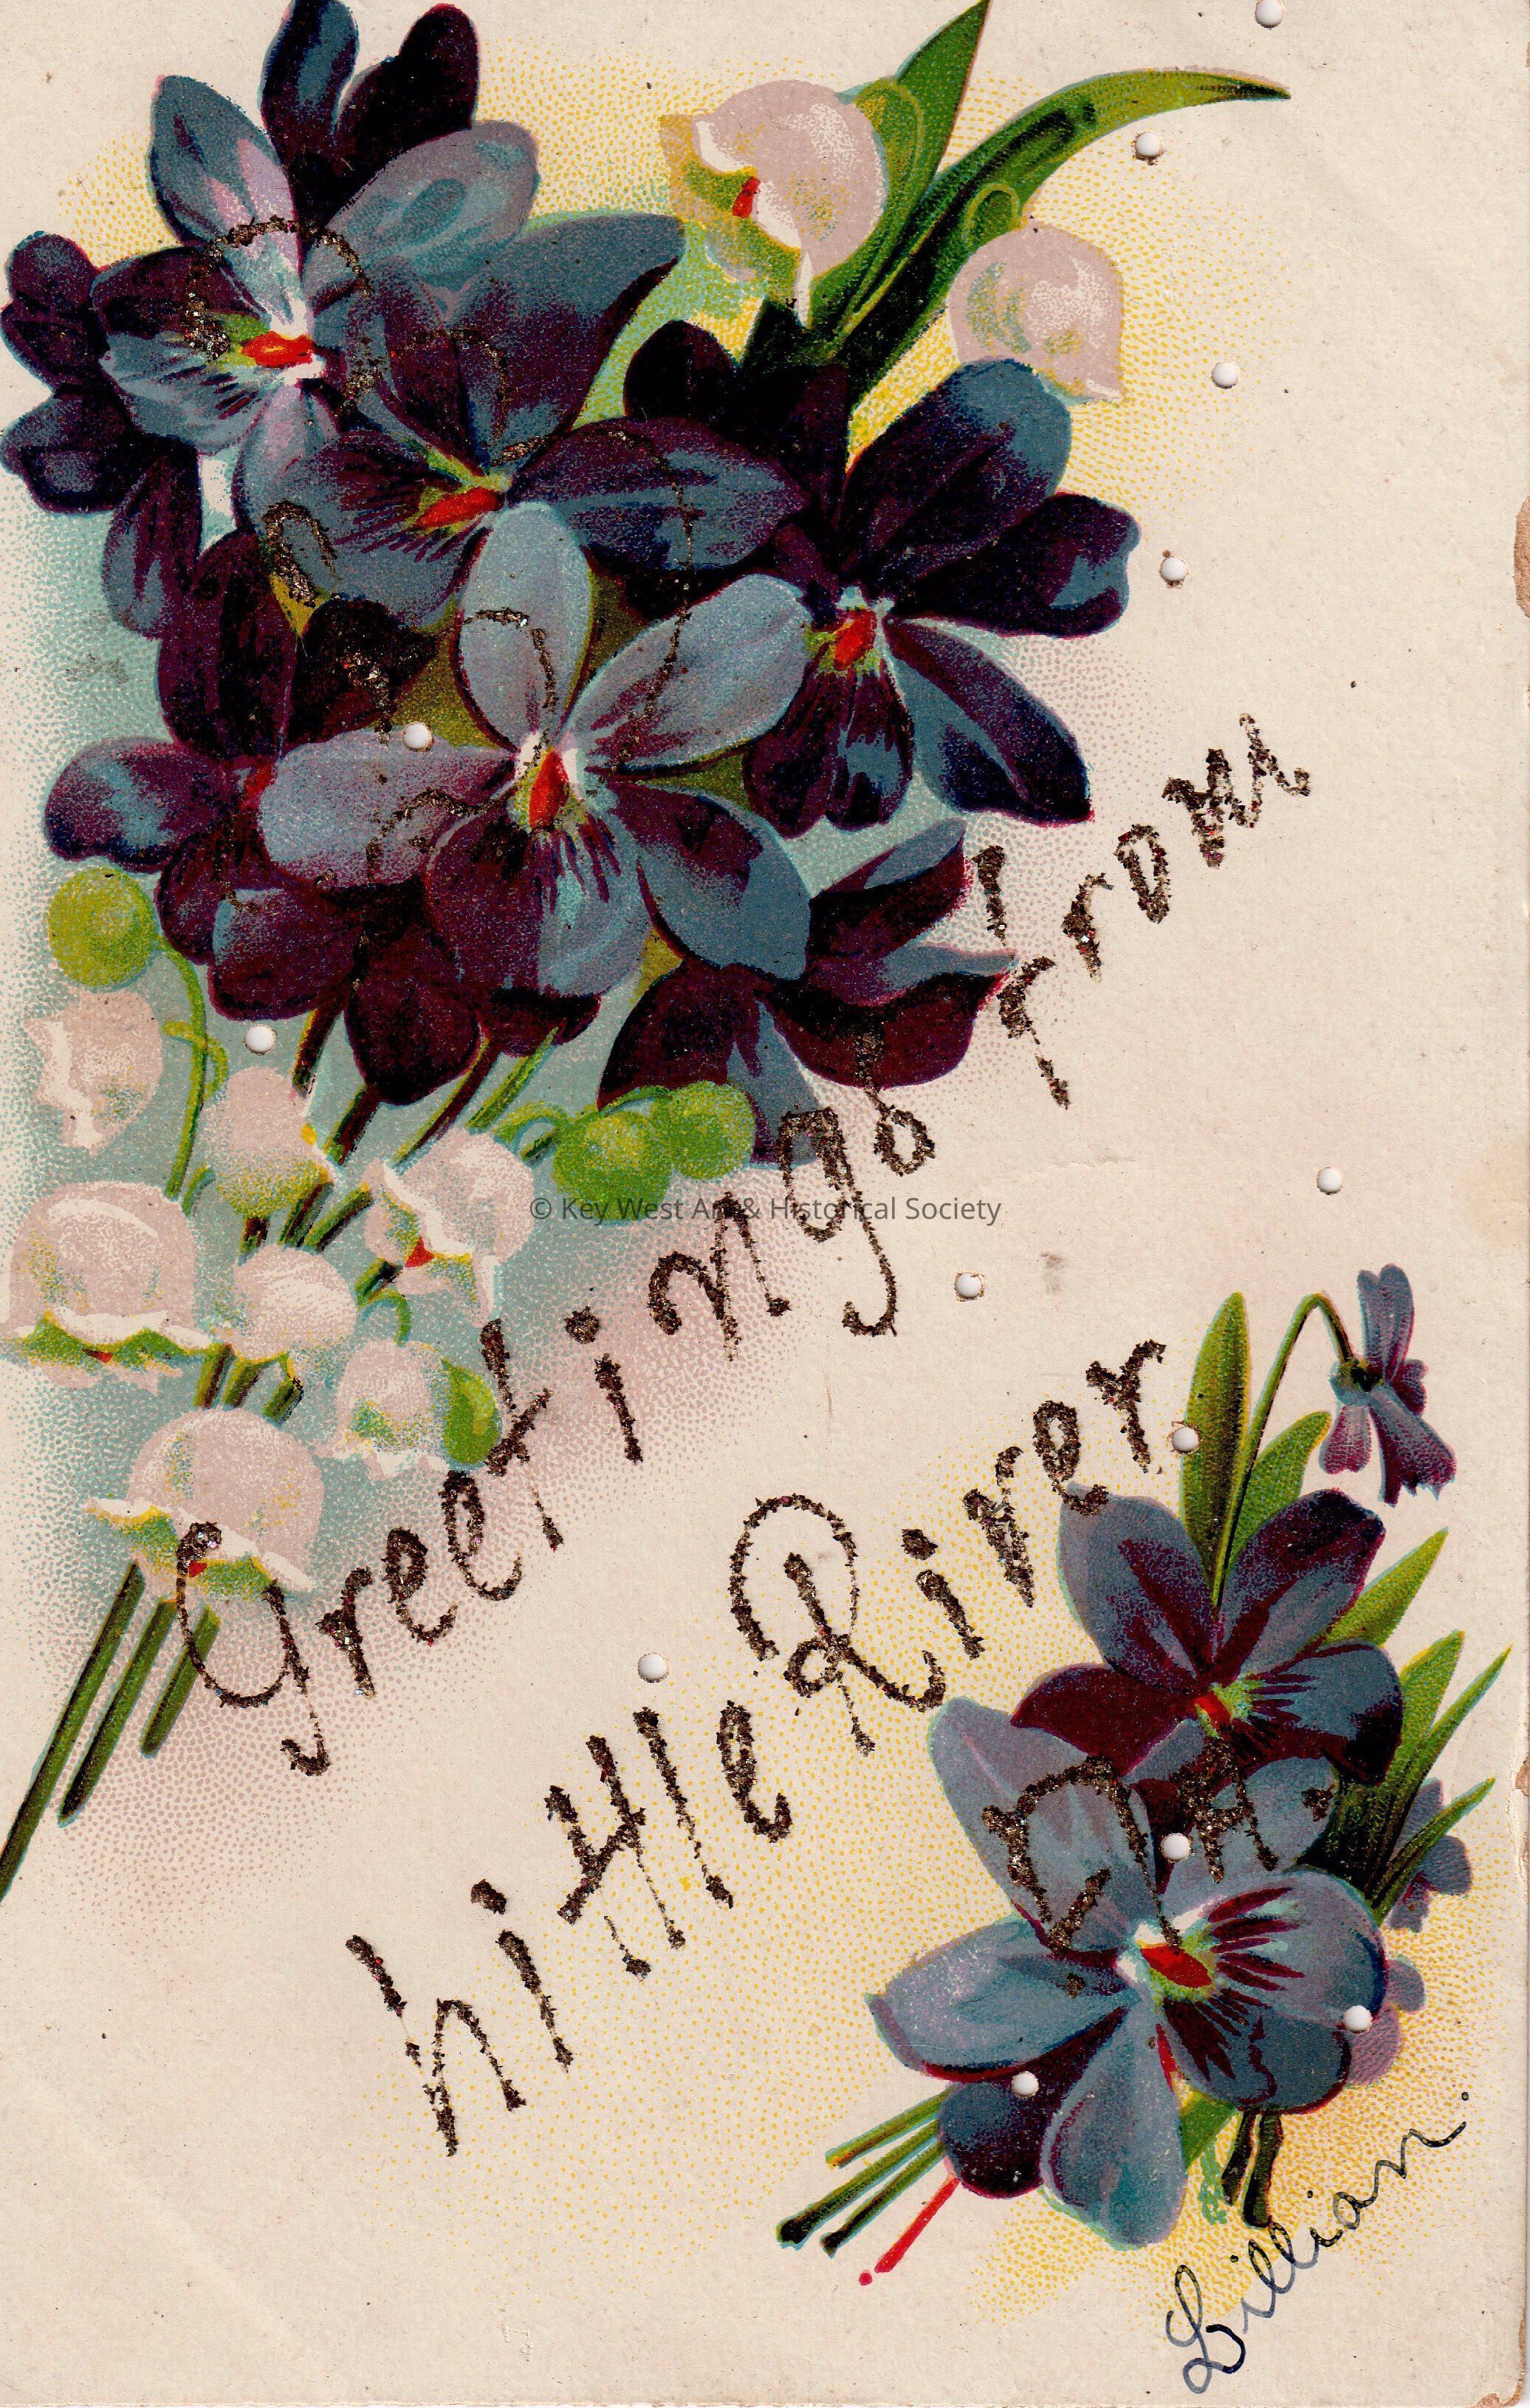 Greetings From
Little River
Lillian.
© Key West Art & Historical Society